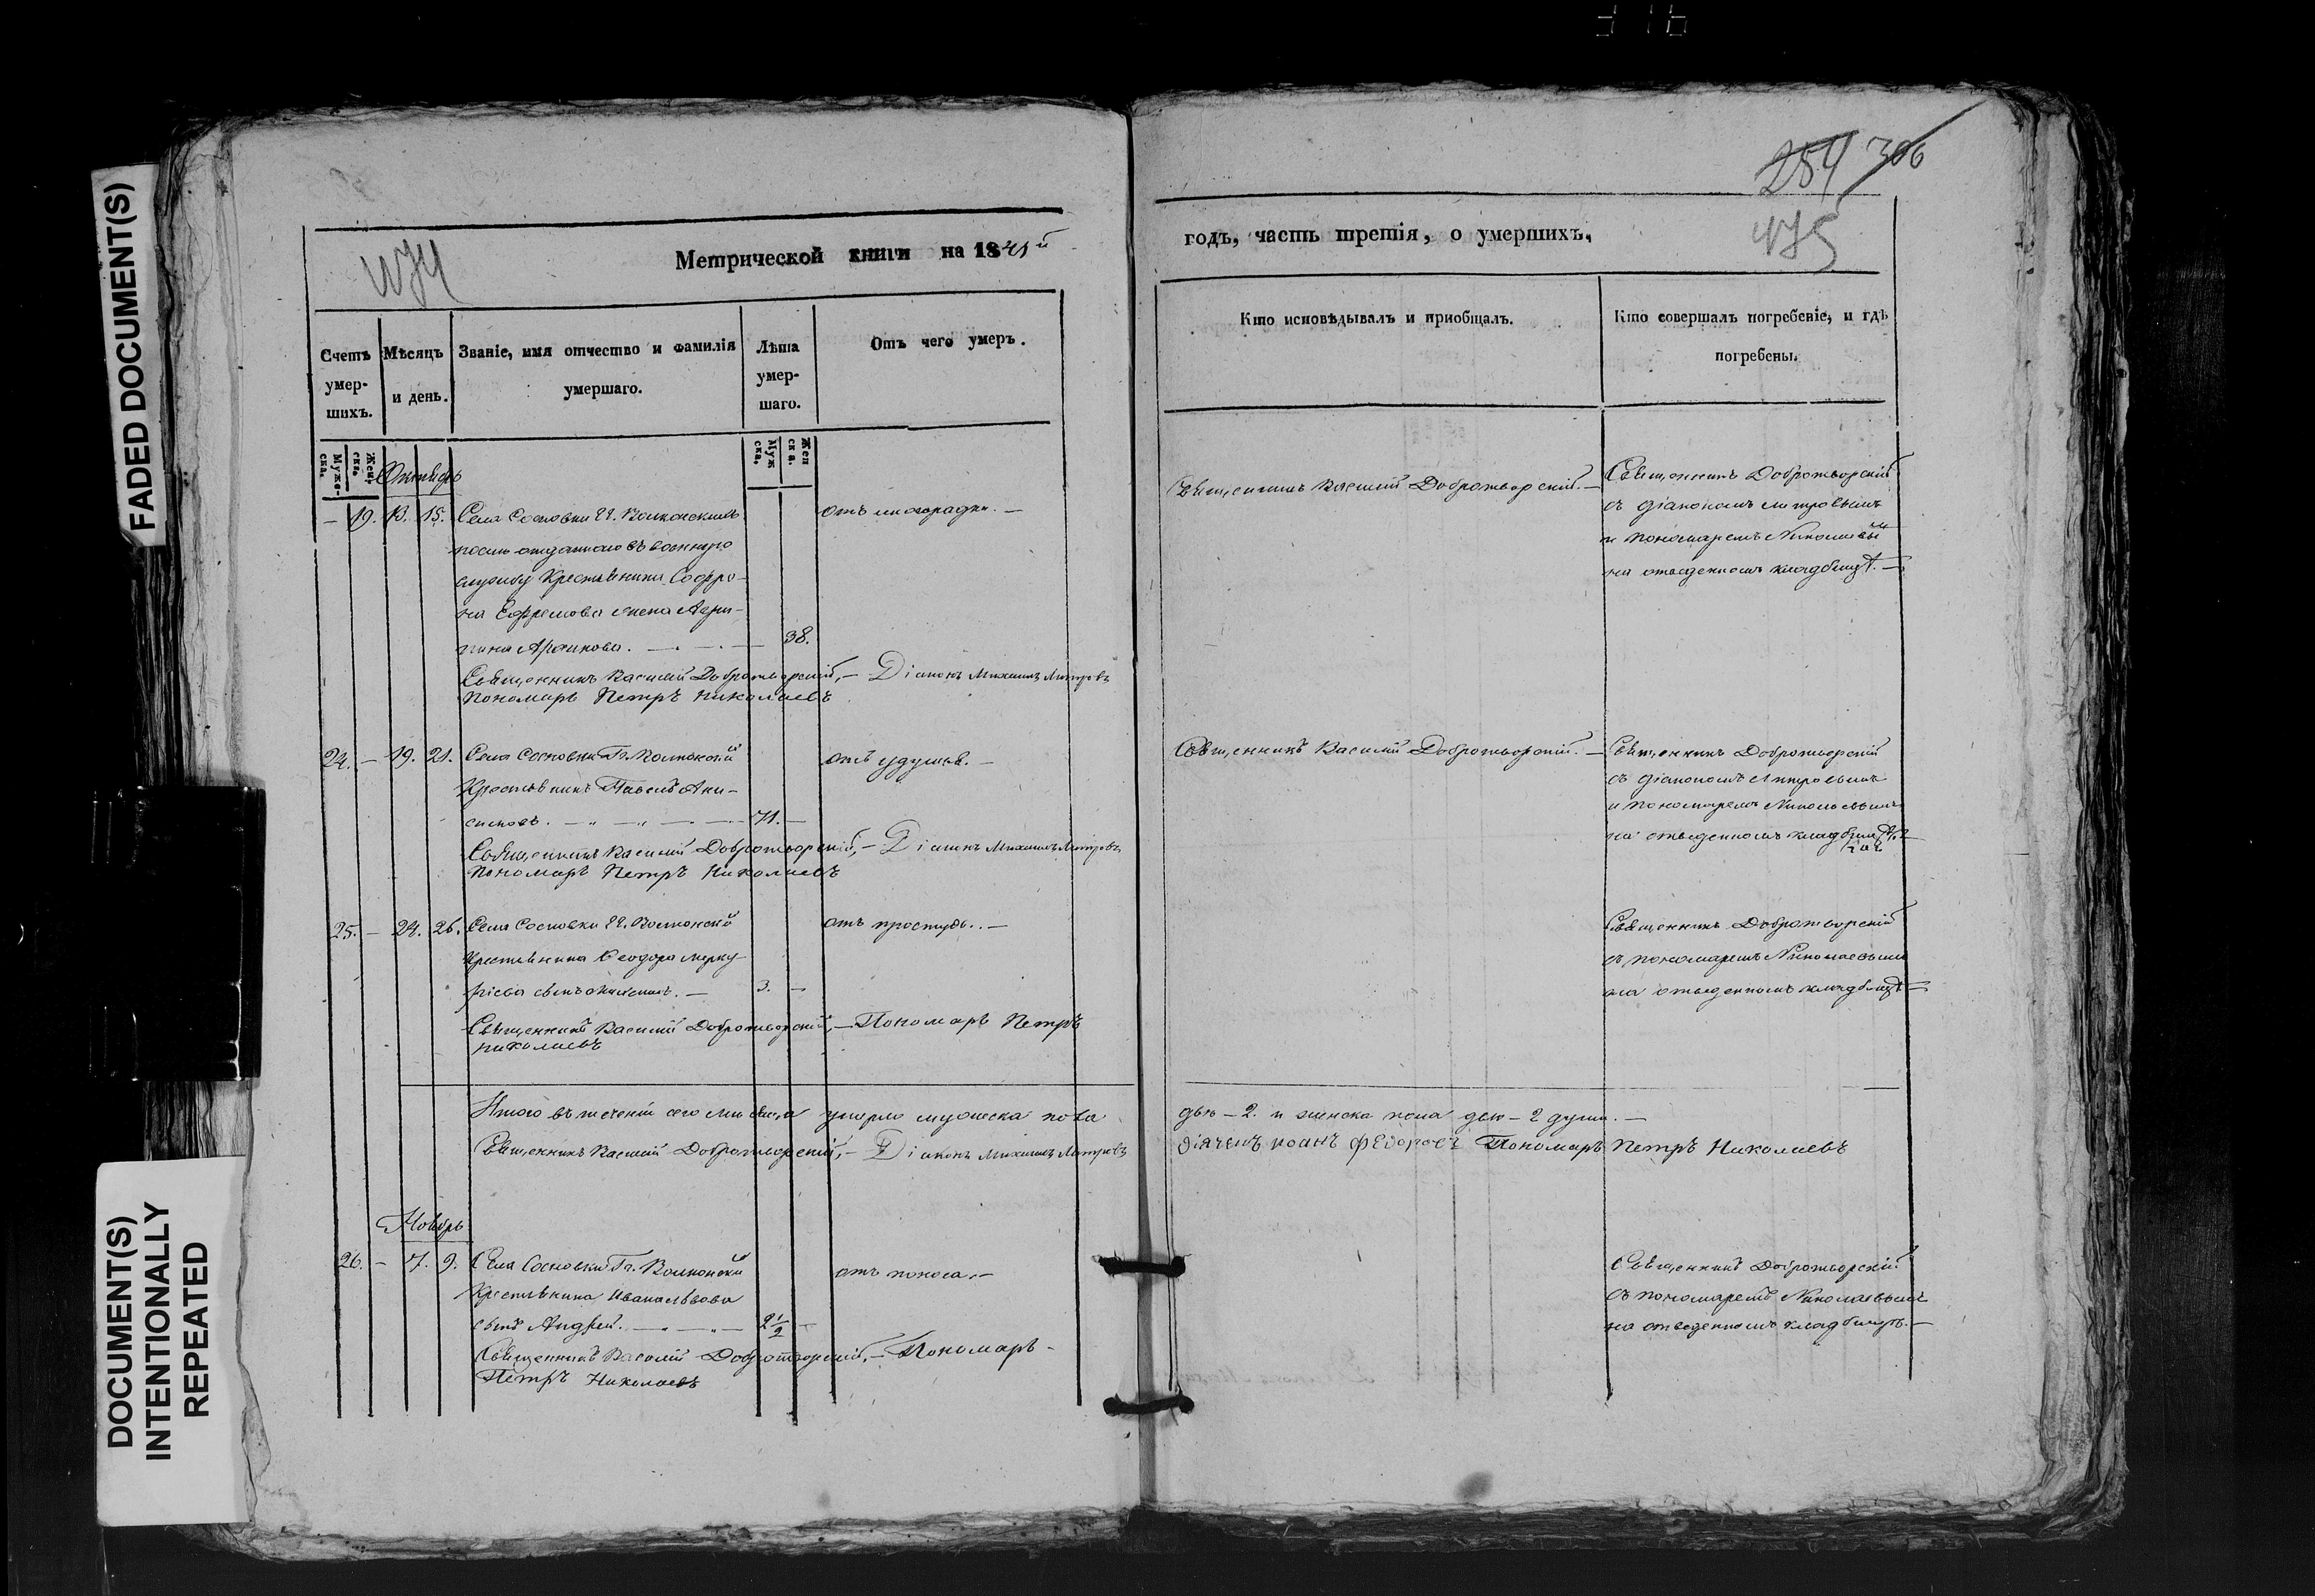 FADED DOCUMENT(S)
DOCUMENT(S)
INTENTIONALLY
REPEATED
474
Метрической книги на 1841й
Счетъ умер-шихъ.
Мѣсяцъ и день.
Званіе, имя отчество и фамилія умершаго.
Лѣта умер-шаго.
Отъ чего умеръ.
Муже-ска.
Жен-ска.
Муж ска.
Жен ска.
Октябрь
— 19. 13. 15. Села Сосновки гг. Волконскихъ
отъ лихорадки. —
отданнаго въ военную
службу Крестьянина Софро-
на Ефремова жена Агри-
пина 38.
Священникъ Василій Добротворскій, — Діаконъ Михаилъ Митровъ
Пономарь Петръ Николаевъ
24. — 19. 21. Села Сосновки Гг. Волконской
отъ удушья. —
Крестьянинъ Павелъ Ани-
симовъ. 71. —
Священникъ Василій Добротворскій, — Діаконъ Михаилъ Митровъ
Пономарь Петръ Николаевъ
25. — 24. 26. Села Сосновки гг. Волконской
отъ простуды. —
Крестьянина Феодора Мерку-
рiева сынъ 3. —
Священникъ Василій Добротворскій, — Пономарь Петръ
Николаевъ
Итого въ теченіи сего мѣсяца умерло мужеска пола
Священникъ Василій Добротворскій, — Діаконъ Михаилъ Митровъ
Ноябрь
26. — 7. 9. Села Сосновки Гг. Волконской
отъ поноса. —
Крестьянина Ивана Львова
сынъ Андрей. 2 1/2 —
Священникъ Василій Добротворскій, — Пономарь
Петръ Николаевъ
254 306
475
годъ, часть третія, о умершихъ.
Кто исповѣдывалъ и приобщалъ.
Кто совершалъ погребеніе, и гдѣ погребены.
Священникъ Василій Добротворскій. —
Священникъ Добротворскій
съ діакономъ Митровымъ
и пономаремъ Николаевымъ
на отведенномъ кладбищѣ. —
Священникъ Василій Добротворскій. —
Священникъ Добротворскій
съ діакономъ Митровымъ
и пономаремъ Николаевымъ
на отведенномъ кладбищѣ
Священникъ Добротворскій
съ пономаремъ Николаевымъ
на отведенномъ кладбищѣ —
два — 2. и женска пола две — 2 души. —
Дiячекъ Иоанъ Федоровъ Пономарь Петръ Николаевъ
Священникъ Добротворскій
съ пономаремъ Николаевымъ
на отведенномъ кладбищѣ. —